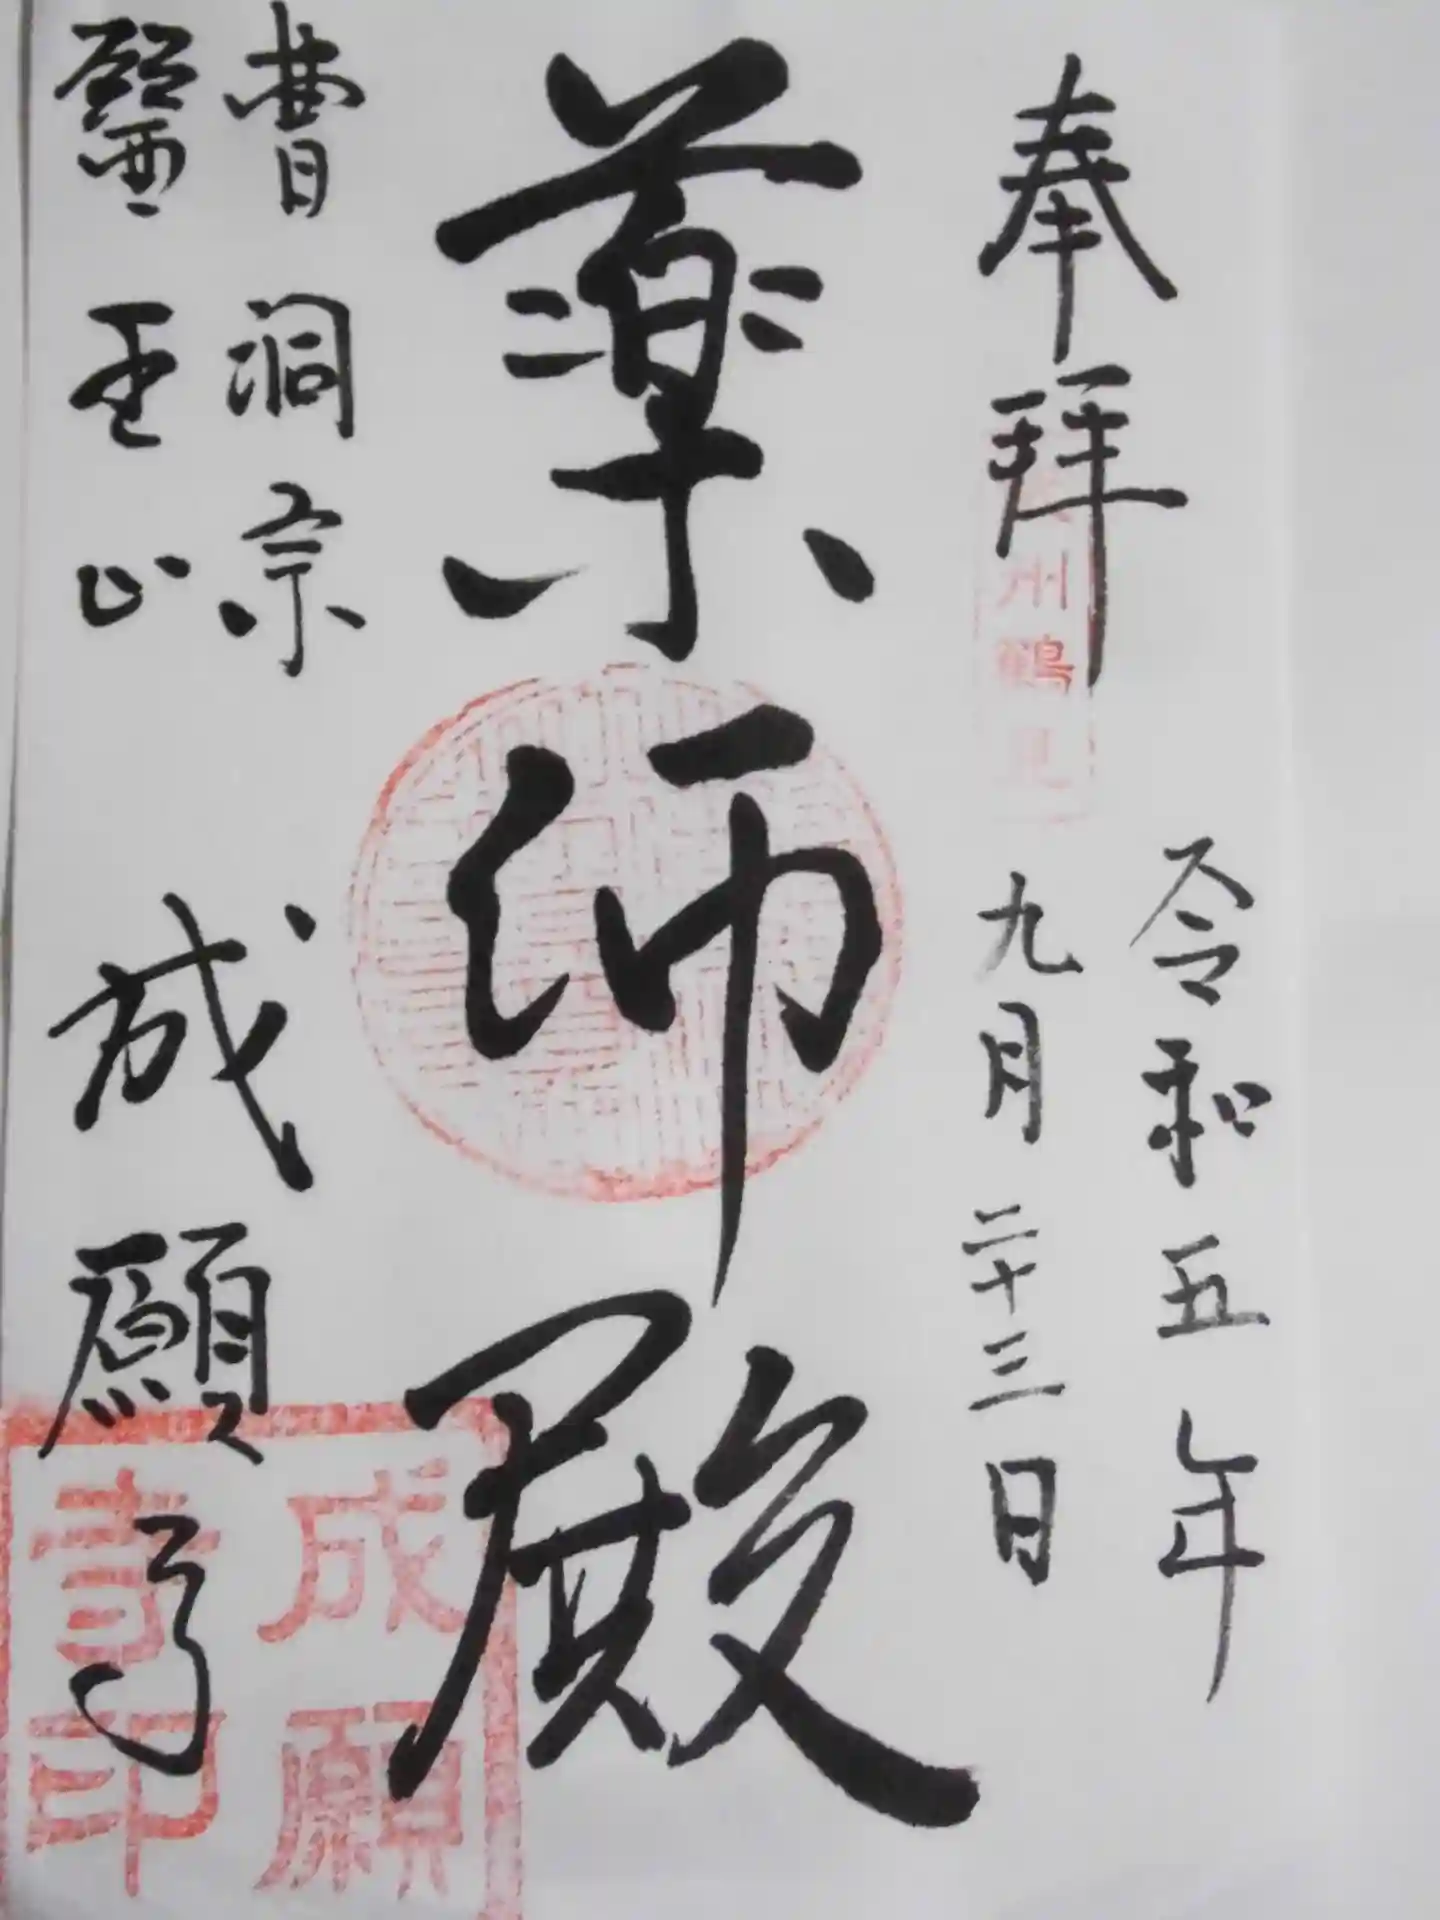 奉拝
州鶴見
令和五年
九月二十三日
薬師殿
曹洞宗
醫王山
成願寺
成願
寺印